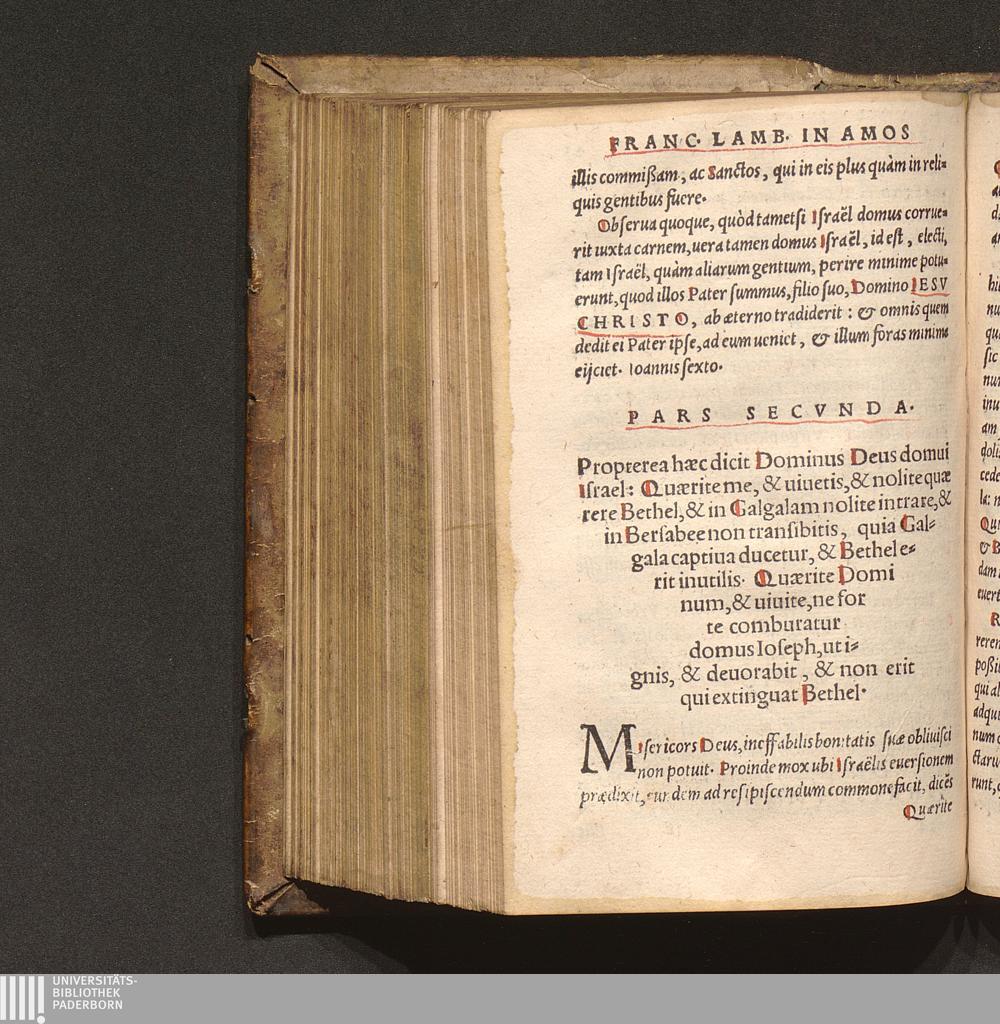 FRANC. LAMB. IN AMOS
illis commißam, ac Sanctos, qui in eis plus quàm in reli=
quis gentibus fuere.
Obserua quoque, quòd tametsi Israël domus corrue=
rit iuxta carnem, uera tamen domus Israël, id est, electi,
tam Israël, quàm aliarum gentium, perire minime potu=
erunt, quod illos Pater summus, filio suo, Domino IESV
CHRISTO, ab æterno tradiderit : & omnis quem
dedit ei Pater ipse, ad eum ueniet, & illum foras minime
eijciet. Ioannis sexto.
PARS SECVNDA.
Propterea hæc dicit Dominus Deus domui
Israel: Quærite me, & uiuetis, & nolite quæ
rere Bethel, & in Galgalam nolite intrare, &
in Bersabee non transibitis, quia Gal=
gala captiua ducetur, & Bethel e=
rit inutilis. Quærite Domi
num, & uiuite, ne for
te comburatur
domus Ioseph, ut i=
gnis, & deuorabit, & non erit
qui extinguat Bethel.
Misericors Deus, ineffabilis bonitatis suæ obliuisci
non potuit. Proinde mox ubi Israëlis euersionem
prædixit, eundem ad resipiscendum commonefacit, dicẽs
Quærite
hi
nu
qu
sic
nun
inu
am
dolis
cede
la: n
Qu
& B
dam
euert
R
reren
poßi
qui al
adqui
num c
ctaru
runt, q
UNIVERSITÄTS-
BIBLIOTHEK
PADERBORN